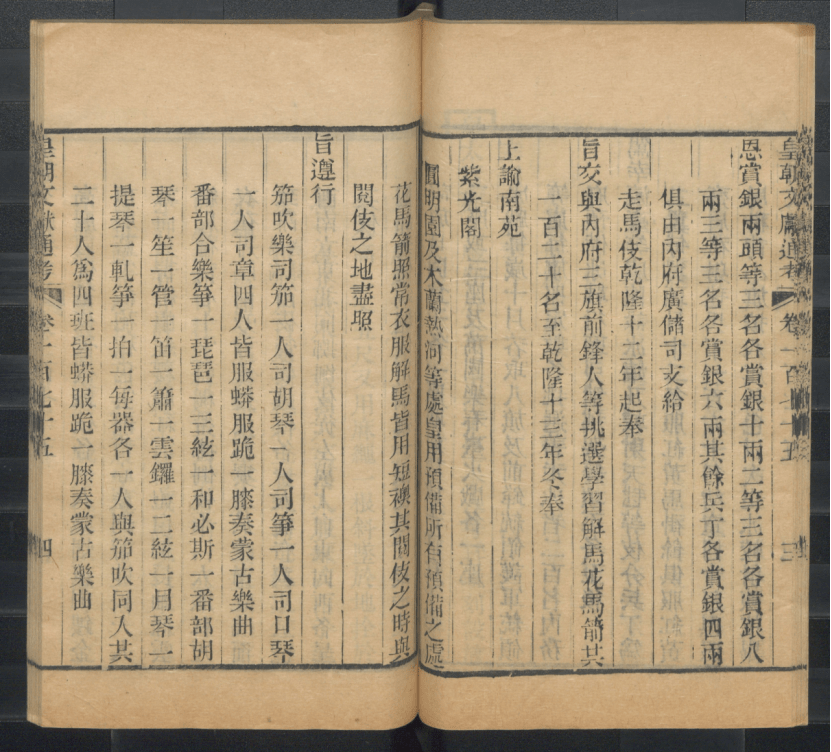 皇朝文獻通考 卷一百七十五 三
恩賞銀兩頭等三名各賞銀十兩二等三名各賞銀八
兩三等三名各賞銀六兩其餘兵丁各賞銀四兩
俱由內府廣儲司支給
走馬伎乾隆十二年起奉
旨交與內府三旗前鋒人等挑選學習解馬花馬箭共
一百二十名至乾隆十三年冬奉
上諭南苑
紫光閣
圓明園及木蘭熱河等處皇用預備所有預備之處
花馬箭照常衣服解馬皆用短襖其閱伎之時與
閱伎之地盡照
旨遵行
笳吹樂司笳一人司胡琴一人司箏一人司口琴
一人司章四人皆服蟒服跪一膝奏蒙古樂曲
番部合樂箏一琵琶一三絃一和必斯一番部胡
琴一笙一管一笛一簫一雲鑼一二絃一月琴一
提琴一軋箏一拍一每器各一人與笳吹同入共
二十人爲四班皆蟒服跪一膝奏蒙古樂曲
皇朝文獻通考 卷一百七十五 四